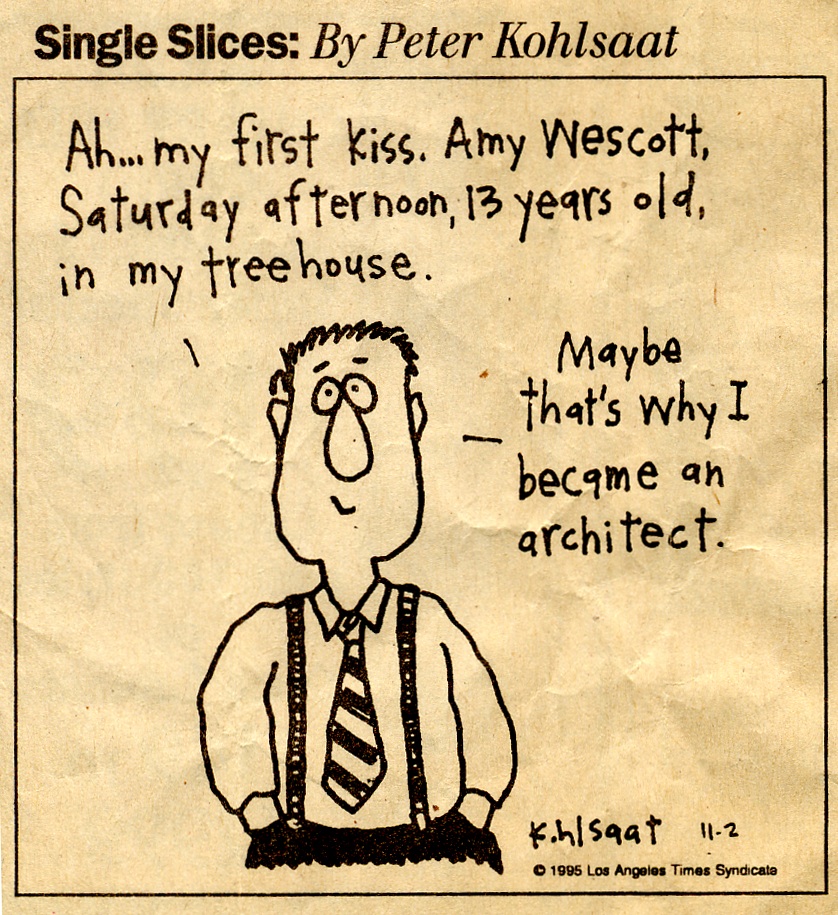 Single Slices: By Peter Kohlsaat
Ah...my first kiss. Amy Wescott,
Saturday afternoon, 13 years old,
in my treehouse.
Maybe
that's why I
became an
architect.
K.hlsaat 11-2
© 1995 Los Angeles Times Syndicate